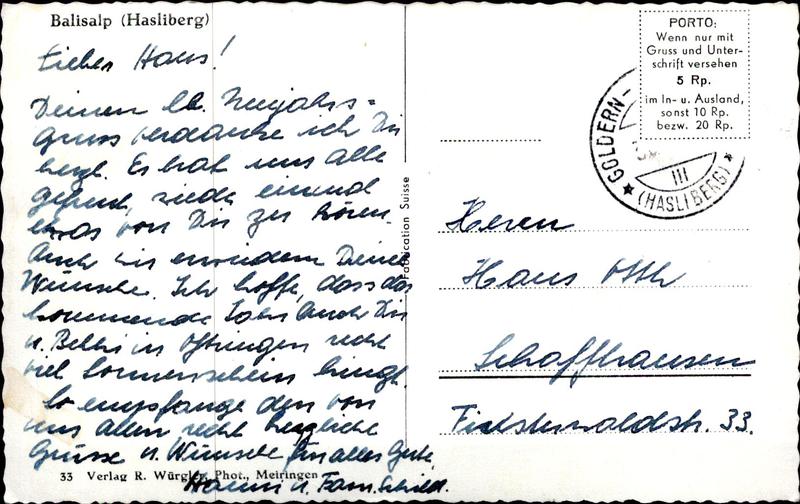 Balisalp (Hasliberg)
Lieber Hans!
Deinen lb. Neujahrs=
gruss verdanke ich Dir
herzl. Es hat uns alle
gefreut, wieder einmal
etwas von Dir zu hören,
Auch wir erwidern Deine
Wünsche. Ich hoffe, dass das
kommende Jahr auch Dir
u. in Oftringen recht
viel Sonnenschein bringt.
So empfange den von
uns allen recht herzliche
Grüsse u. Wünsche für alles Gute
Hanni u. Fam. Schild.
33 Verlag R. Würgler, Phot., Meiringen
Fabrication Suisse
PORTO:
Wenn nur mit
Gruss und Unter-
schrift versehen
5 Rp.
im In- u. Ausland,
sonst 10 Rp.
bezw. 20 Rp.
GOLDERN-
III
(HASLIBERG)
Herrn
Hans Otth
Schaffhausen
33.